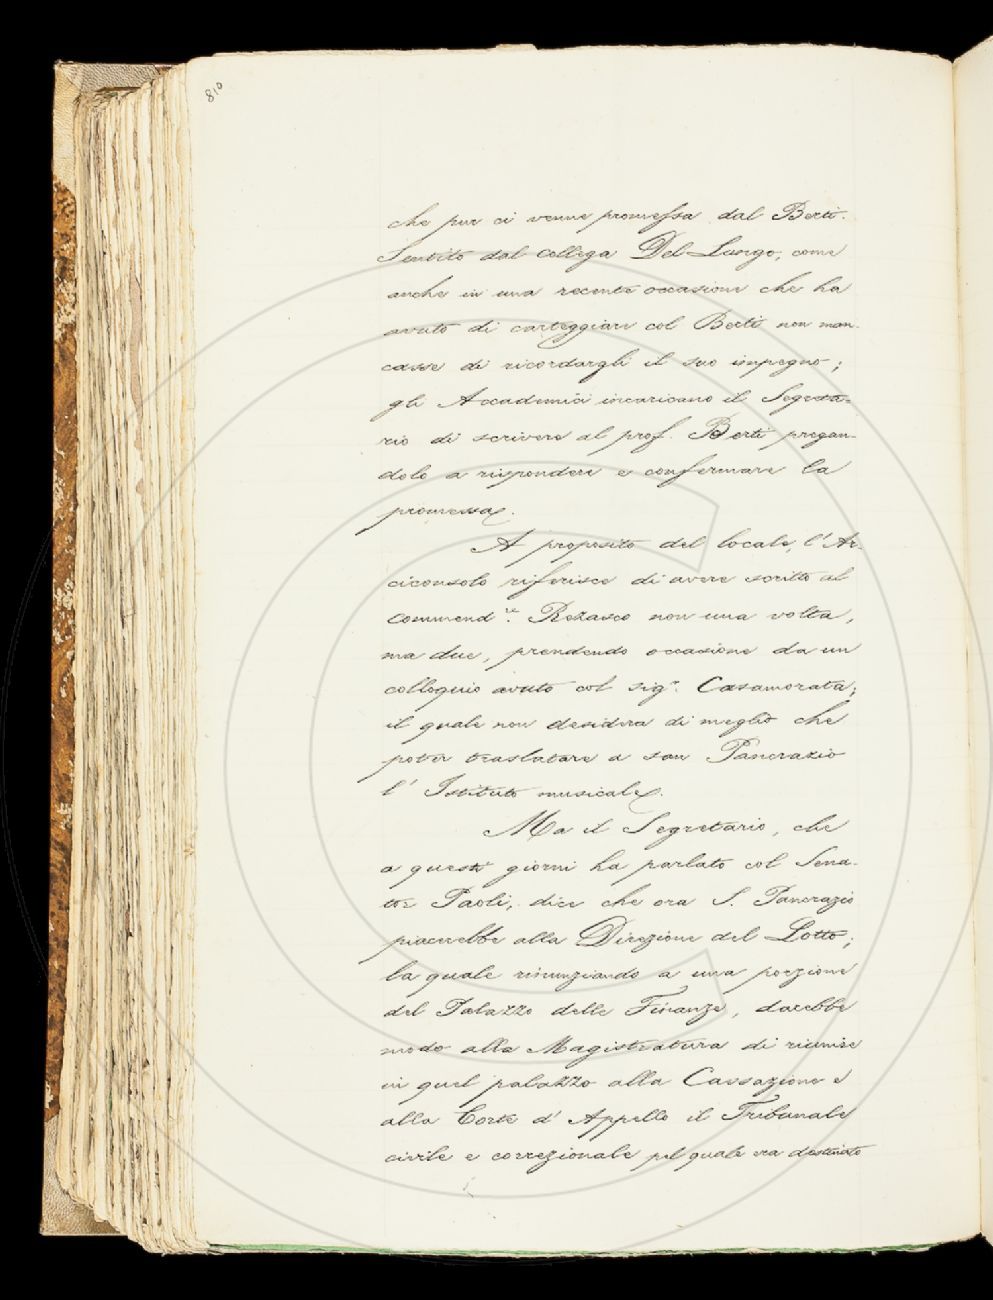 810
che pur ci venne promessa dal Berti.
Sentito dal collega Del-Lungo, come
anche in una recente occasione che ha
avuto di carteggiare col Berti non man-
casse di ricordargli il suo impegno;
gli Accademici incaricano il Segreta-
rio di scrivere al prof. Berti pregan-
dolo a rispondere e confermare la
promessa.
A proposito del locale, l'Ar-
ciconsolo riferisce di avere scritto al
Commend.re Rezasco non una volta,
ma due, prendendo occasione da un
colloquio avuto col sigr. Casamorata;
il quale non desidera di meglio che
poter traslatare a san Pancrazio
l'Istituto musicale.
Ma il Segretario, che
a questi giorni ha parlato col Sena-
tor Paoli, dice che ora S. Pancrazio
piacerebbe alla Direzione del Lotto;
la quale rinunziando a una porzione
del Palazzo delle Finanze, darebbe
modo alla Magistratura di riunire
in quel palazzo alla Cassazione e
alla Corte d'Appello il Tribunale
civile e correzionale pel quale era destinato